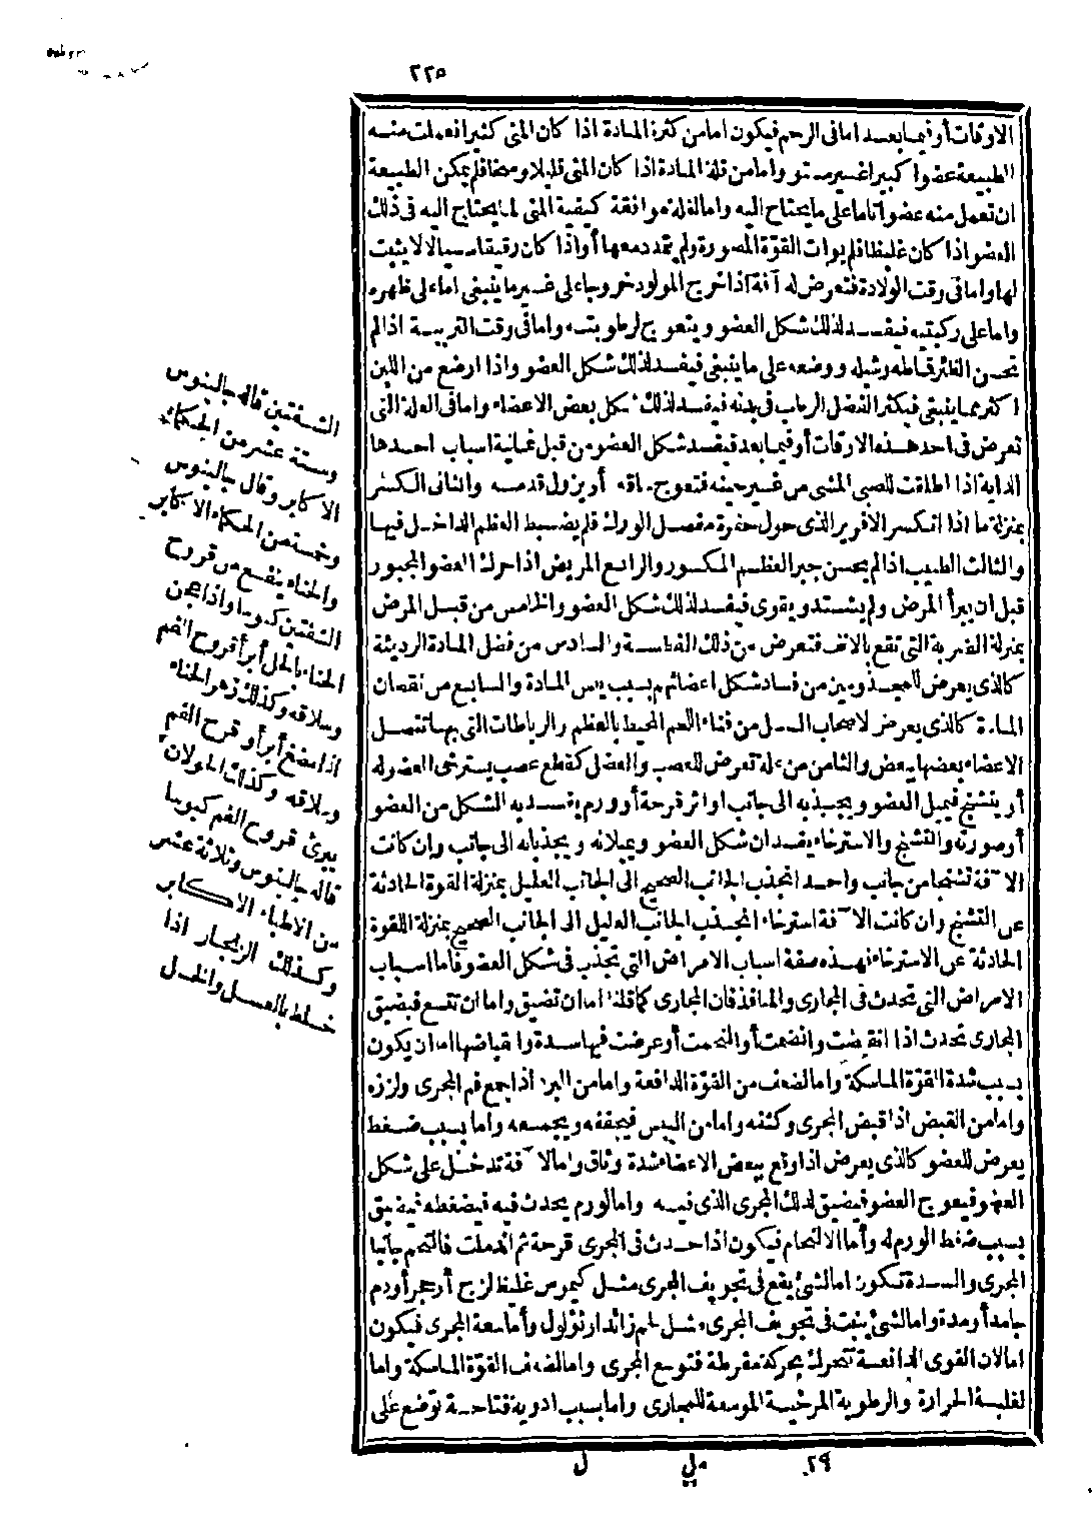 ٢٢٥
الاوقات أو فيما بعد اما فى الرحم فيكون اما من كثرة المادة اذا كان المنى كثيرا فعملت منه
الطبيعة عضوا كبيرا غير مستو واما من قلة المادة اذا كان المنى قليلا ومضا فلم يمكن الطبيعة
ان تعمل منه عضوا تاما على ما يحتاج اليه واما لقلة موافقة كيفية المنى لما يحتاج اليه فى ذلك
العضو اذا كان غليظا فلم يوات القوّة المصورة ولم يتمدد معها أو اذا كان رقيقا سيالا لا يثبت
لها واما فى وقت الولادة فتعرض له آفة اذا خرج المولود خروجا على غير ما ينبغى اما على ظهره
واما على ركبتيه فيفسد لذلك شكل العضو ويتعوج لرطوبته واما فى وقت التربية اذا لم
تحسن الظئر قماطه وشيله ووضعه على ما ينبغى فيفسد لذلك شكل العضو واذا ارضع من اللبن
اكثر مما ينبغى فيكثر الفضل الرطب فى بدنه فيفسد لذلك شكل بعض الاعضاء واما فى العلة التى
تعرض فى احد هذه الاوقات أو فيما بعد فيفسد شكل العضو من قبل ثمانية اسباب احدها
الداية اذا اطلقت للصبى المشى من غير حينه فتعوج ساقه أو يزول قدمه والثانى الكسر
بمنزلة ما اذا انكسر الافريز الذى حول حفرة مفصل الورك فلم يضبط العظم الداخل فيها
والثالث الطبيب اذا لم يحسن جبر العظم المكسور والرابع المريض اذا حرك العضو المجبور
قبل ان يبرأ المرض ولم يشتد ويقوى فيفسد لذلك شكل العضو والخامس من قبل المرض
بمنزلة الضربة التى تقع بالانف فتعرض من ذلك الفطسة والسادس من فضل المادة الرديئة
كالذى يعرض للمجذومين من فساد شكل اعضائهم بسبب يبس المادة والسابع من نقصان
المادة كالذى يعرض لاصحاب السل من فناء اللحم المحيط بالعظم والرباطات التى بها تتصل
الاعضاء بعضها ببعض والثامن من علة تعرض للعصب والعضل كقطع عصب يسترخى العضو له
أو يتشنج فيميل العضو ويجبذبه الى جانب او اثر قرحة أو ورم يفسد به الشكل من العضو
أو صورته والتشنج والاسترخاء يفسدان شكل العضو ويميلانه ويجذبانه الى جانب وان كانت
الآفة تشنجا من جانب واحد انجذب الجانب الصحيح الى الجانب العليل بمنزلة القوة الحادثة
عن التشنج وان كانت الآفة استرخاء انجذب الجانب العليل الى الجانب الصحيح بمنزلة اللقوة
الحادثة عن الاسترخاء فهذه صفة اسباب الامراض التى تحدث فى شكل العضو فاما اسباب
الامراض التى تحدث فى المجارى والمنافذ فان المجارى كما قلنا اما ان تضيق واما ان تتسع فيضيق
المجارى تحدث اذا انقبضت وانضمت أو التحمت أو عرضت فيها سدة وانقباضها اما ان يكون
بسبب شدة القوّة الماسكة واما لضعف من القوّة الدافعة واما من البرد اذا جمع فم المجرى ولززه
واما من القبض اذا قبض المجرى وكثفه واما من اليبس فيجففه ويجمعه واما بسبب ضغط
يعرض للعضو كالذى يعرض اذا وقع ببعض الاعضاء شدة وثاق واما لآفة تدخل على شكل
العضو فيعوج العضو فيضيق لذلك المجرى الذى فيه واما لورم يحدث فيه فيضغطه فيضيق
بسبب ضغط الورم له وأما الالتحام فيكون اذا حدث فى المجرى قرحة ثم اندملت فالتحم جانبا
المجرى والسدة تكون اما لشئ يقع فى تجويف المجرى مثل كيموس غليظ لزج أو حجر أو دم
جامد أو مدة واما لشئ ينبت فى تجويف المجرى مثل لحم زائد او ثؤلول وأما سعة المجرى فيكون
اما لان القوى الدافعة تتحرك بحركة مفرطة فتوسع المجرى واما لضعف القوّة الماسكة واما
لغلبة الحرارة والرطوبة المرخية الموسعة للمجارى واما بسبب ادوية فتاحة توضع على
الشفتين قاله جالينوس
وستة عشر من الحكماء
الاكابر وقال جالينوس
وخمسة من الحكماء الاكابر
والحناء ينفع من قروح
الشفتين كبوسا واذا عجن
الحناء بالخل أبرأ قروح الفم
وسلاقه وكذلك زهر الحناء
اذا مضغ أبرأ قروح الفم
وسلاقه وكذلك الخولان
يبرئ قروح الفم كبوسا
قاله جالينوس وثلاثة عشر
من الاطباء الاكابر
وكذلك الزنجار اذا
خلط بالعسل والخل
٢٩ ملى ل